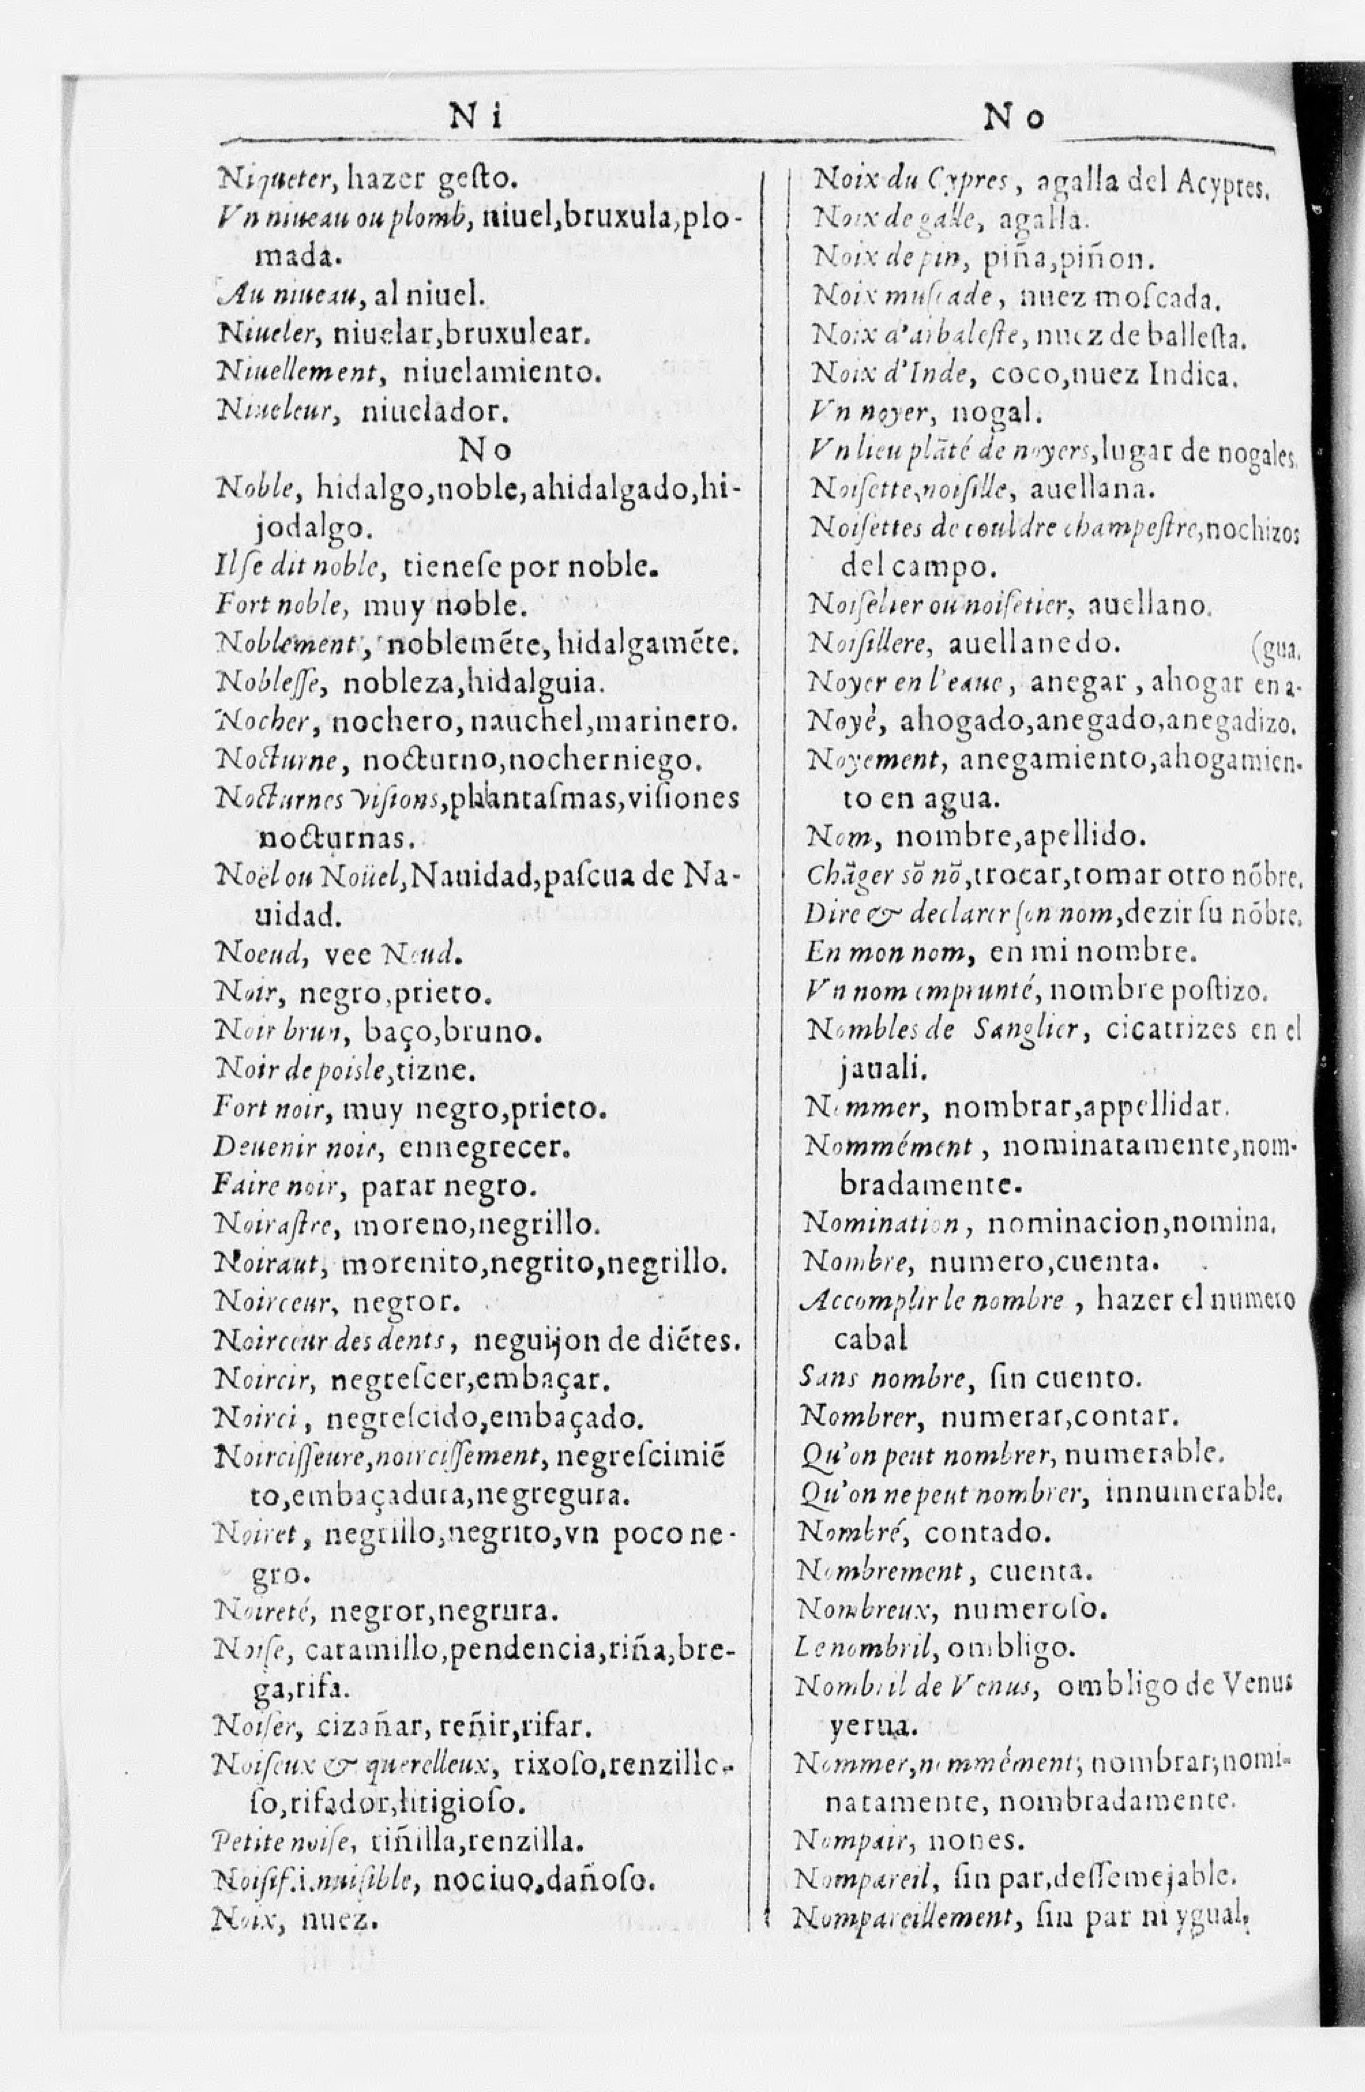 Ni
Niqueter, hazer geſto.
Vn niueau ou plomb, niuel,bruxula,plo-
mada.
Au niueau, al niuel.
Niueler, niuelar,bruxulear.
Niuellement, niuelamiento.
Niueleur, niuelador.
No
Noble, hidalgo,noble,ahidalgado,hi-
jodalgo.
Il ſe dit noble, tieneſe por noble.
Fort noble, muy noble.
Noblement, noblemẽte, hidalgamẽte.
Nobleſſe, nobleza,hidalguia.
Nocher, nochero, nauchel,marinero.
Nocturne, nocturno,nocherniego.
Nocturnes viſions,phantaſmas,viſiones
nocturnas.
Noël ou Noüel,Nauidad,paſcua de Na-
uidad.
Noeud, vee Neud.
Noir, negro,prieto.
Noir brun, baço,bruno.
Noir de poisle,tizne.
Fort noir, muy negro,prieto.
Deuenir noir, ennegrecer.
Faire noir, parar negro.
Noiraſtre, moreno,negrillo.
Noiraut, morenito,negrito,negrillo.
Noirceur, negror.
Noirceur des dents, neguijon de diẽtes.
Noircir, negreſcer,embaçar.
Noirci, negreſcido,embaçado.
Noirciſſeure,noirciſſement, negreſcimiẽ
to,embaçadura,negregura.
Noiret, negrillo,negrito,vn poco ne-
gro.
Noireté, negror,negrura.
Noiſe, caramillo,pendencia,riña,bre-
ga,rifa.
Noiſer, cizañar, reñir,rifar.
Noiſeux & querelleux, rixoſo,renzillo-
ſo,rifador,litigioſo.
Petite noiſe, riñilla,renzilla.
Noiſif.i.nuiſible, nociuo,dañoſo.
Noix, nuez.
No
Noix du Cypres, agalla del Acypres.
Noix de galle, agalla.
Noix de pin, piña,piñon.
Noix muſcade, nuez moſcada.
Noix d'arbaleſte, nuez de balleſta.
Noix d'Inde, coco,nuez Indica.
Vn noyer, nogal.
Vn lieu plãté de noyers,lugar de nogales.
Noiſette,noiſille, auellana.
Noiſettes de couldre champeſtre,nochizos
del campo.
Noiſelier ou noiſetier, auellano.
Noiſillere, auellanedo. (gua.
Noyer en l'eaue, anegar, ahogar en a-
Noyé, ahogado,anegado,anegadizo.
Noyement, anegamiento,ahogamien-
to en agua.
Nom, nombre,apellido.
Chãger sõ nõ,trocar,tomar otro nõbre.
Dire & declarer ſon nom,dezir ſu nõbre.
En mon nom, en mi nombre.
Vn nom emprunté, nombre poſtizo.
Nombles de Sanglier, cicatrizes en el
jauali.
Nommer, nombrar,appellidar.
Nommément, nominatamente,nom-
bradamente.
Nomination, nominacion,nomina.
Nombre, numero,cuenta.
Accomplir le nombre, hazer el numero
cabal
Sans nombre, ſin cuento.
Nombrer, numerar,contar.
Qu'on peut nombrer, numerable.
Qu'on ne peut nombrer, innumerable.
Nombré, contado.
Nombrement, cuenta.
Nombreux, numeroſo.
Le nombril, ombligo.
Nombril de Venus, ombligo de Venus
yerua.
Nommer,nommément, nombrar,nomi-
natamente, nombradamente.
Nompair, nones.
Nompareil, ſin par,deſſemejable.
Nompareillement, ſin par ni ygual.